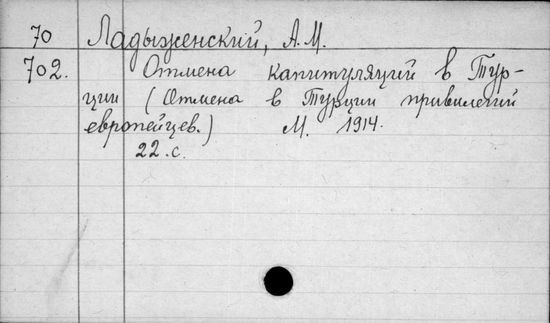 70 Ладыженский, А.М.
702. Отмена капитуляций в Тур-
ции (Отмена в Турции привилегий
европейцев.) М. 1914.
22 с.